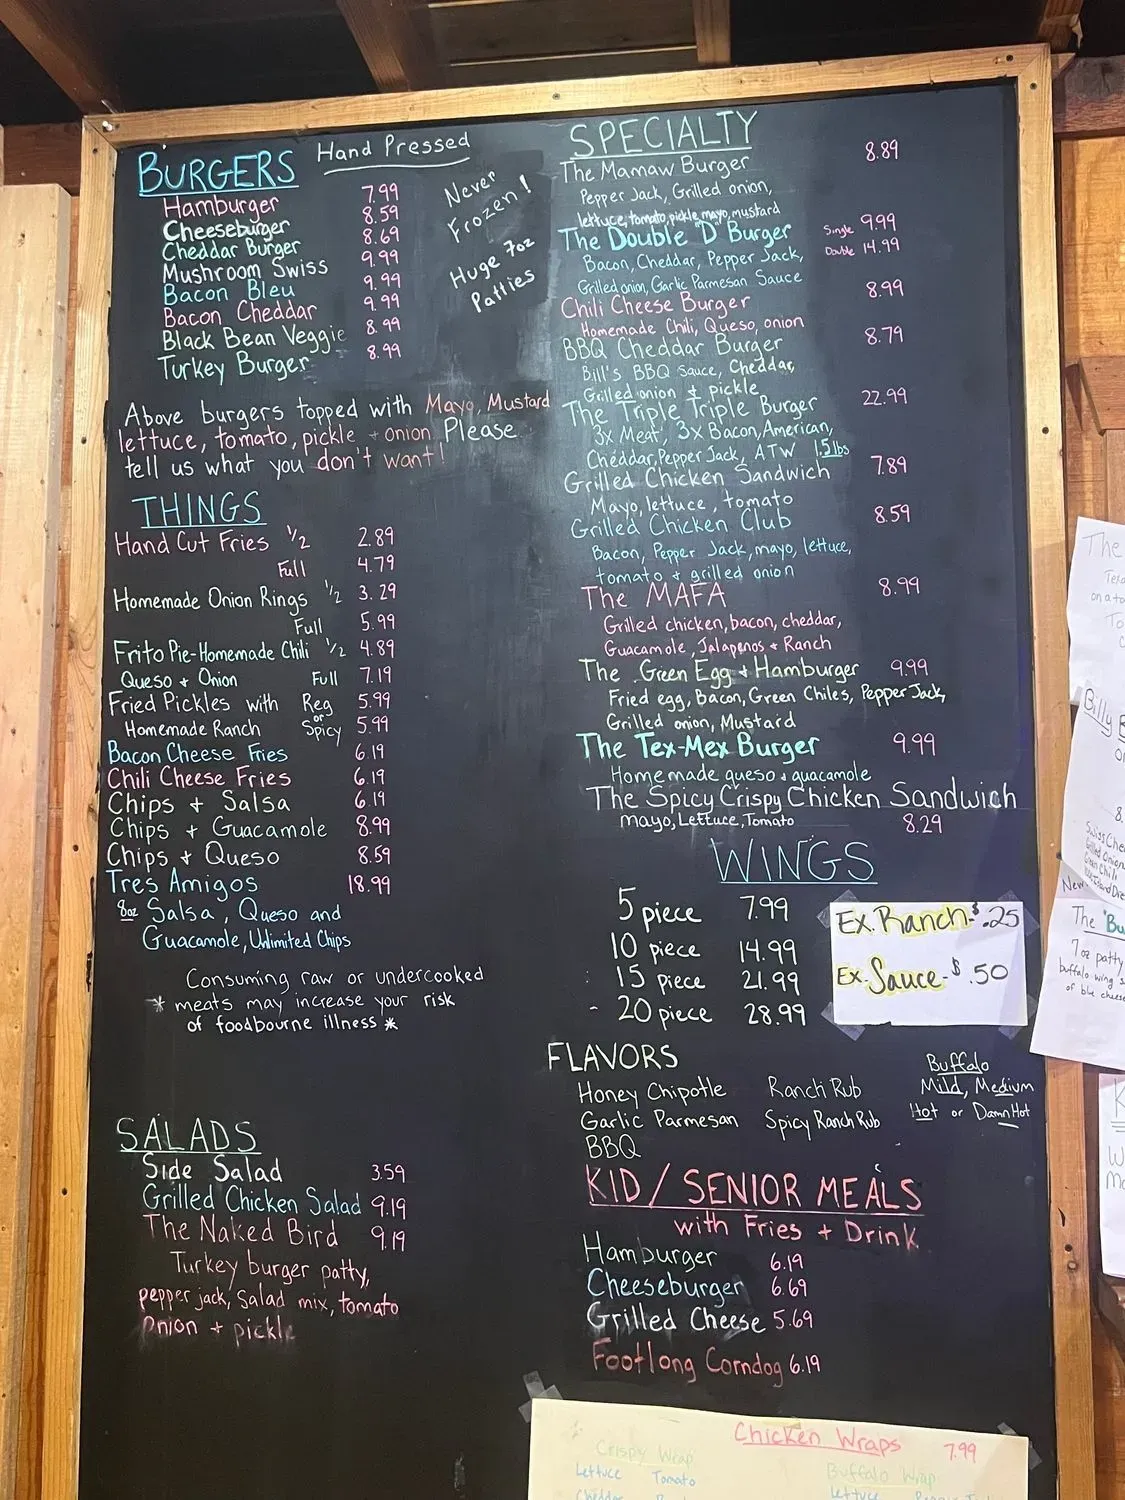 BURGERS Hand Pressed
Hamburger 7.99
Cheeseburger 8.59
Cheddar Burger 8.69
Mushroom Swiss 9.99
Bacon Bleu 9.99
Bacon Cheddar 9.99
Black Bean Veggie 8.99
Turkey Burger 8.99
Never
Frozen!
Huge 7oz
Patties
Above burgers topped with Mayo, Mustard
lettuce, tomato, pickle + onion Please
tell us what you don't want!
THINGS
Hand Cut Fries 1/2 2.89
Full 4.79
Homemade Onion Rings 1/2 3.29
Full 5.99
Frito Pie-Homemade Chili 1/2 4.89
Queso + Onion Full 7.19
Fried Pickles with Reg 5.99
or
Homemade Ranch Spicy 5.99
Bacon Cheese Fries 6.19
Chili Cheese Fries 6.19
Chips + Salsa 6.19
Chips + Guacamole 8.99
Chips + Queso 8.59
Tres Amigos 18.99
8oz Salsa, Queso and
Guacamole, Unlimited Chips
Consuming raw or undercooked
* meats may increase your risk
of foodbourne illness *
SALADS
Side Salad 3.59
Grilled Chicken Salad 9.19
The Naked Bird 9.19
Turkey burger patty,
pepper jack, Salad mix, tomato
onion + pickle
SPECIALTY
The Mamaw Burger 8.89
Pepper Jack, Grilled onion,
lettuce, tomato, pickle, mayo, mustard
The Double "D" Burger Single 9.99
Double 14.99
Bacon, Cheddar, Pepper Jack,
Grilled onion, Garlic Parmesan Sauce
Chili Cheese Burger 8.99
Homemade Chili, Queso, onion
BBQ Cheddar Burger 8.79
Bill's BBQ Sauce, Cheddar,
Grilled onion & pickle
The Triple Triple Burger 22.99
3x Meat, 3x Bacon, American,
Cheddar, Pepper Jack, ATW 1.5lbs
Grilled Chicken Sandwich 7.89
Mayo, lettuce, tomato
Grilled Chicken Club 8.59
Bacon, Pepper Jack, mayo, lettuce,
tomato + grilled onion
The MAFA 8.99
Grilled chicken, bacon, cheddar,
Guacamole, Jalapenos + Ranch
The Green Egg + Hamburger 9.99
Fried egg, Bacon, Green Chiles, Pepper Jack,
Grilled onion, Mustard
The Tex-Mex Burger 9.99
Homemade queso + guacamole
The Spicy Crispy Chicken Sandwich
mayo, Lettuce, Tomato 8.29
WINGS
5 piece 7.99
10 piece 14.99
15 piece 21.99
- 20 piece 28.99
Ex. Ranch-$.25
Ex. Sauce-$.50
FLAVORS
Honey Chipotle Ranch Rub
Garlic Parmesan Spicy Ranch Rub
BBQ
Buffalo
Mild, Medium
Hot or Damn Hot
KID/SENIOR MEALS
with Fries + Drink
Hamburger 6.19
Cheeseburger 6.69
Grilled Cheese 5.69
Footlong Corndog 6.19
Chicken Wraps 7.99
Crispy Wrap Buffalo Wrap
Lettuce Tomato Lettuce
Cheddar
The
on a to
Billy
8.
Swiss Che
Grilled Onion
Green Chili
New
The "Bu
7 oz patty
buffalo wing s
of blu cheese